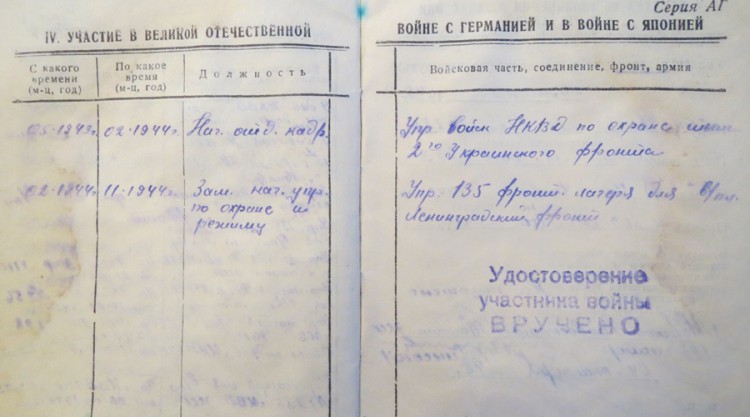 Серия АГ
IV. УЧАСТИЕ В ВЕЛИКОЙ ОТЕЧЕСТВЕННОЙ
ВОЙНЕ С ГЕРМАНИЕЙ И В ВОЙНЕ С ЯПОНИЕЙ
С какого
времени
(м-ц, год)
По какое
время
(м-ц, год)
Должность
Войсковая часть, соединение, фронт, армия
05.1943г.
02.1944г.
Нач. отд. кадр.
Упр. войск НКВД по охране тыла
2го Украинского фронта
02.1944г.
11.1944г.
Зам. нач. упр.
по охране и
режиму
Упр. 135 фронт. лагеря для в/пл.
Ленинградский фронт
Удостоверение
участника войны
ВРУЧЕНО